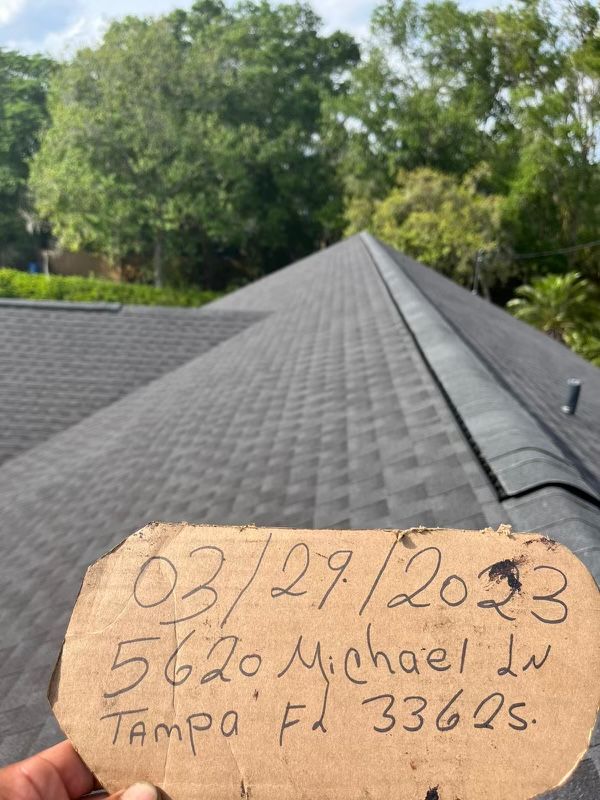 03/29/2023
5620 Michael LN
Tampa FL 33625.